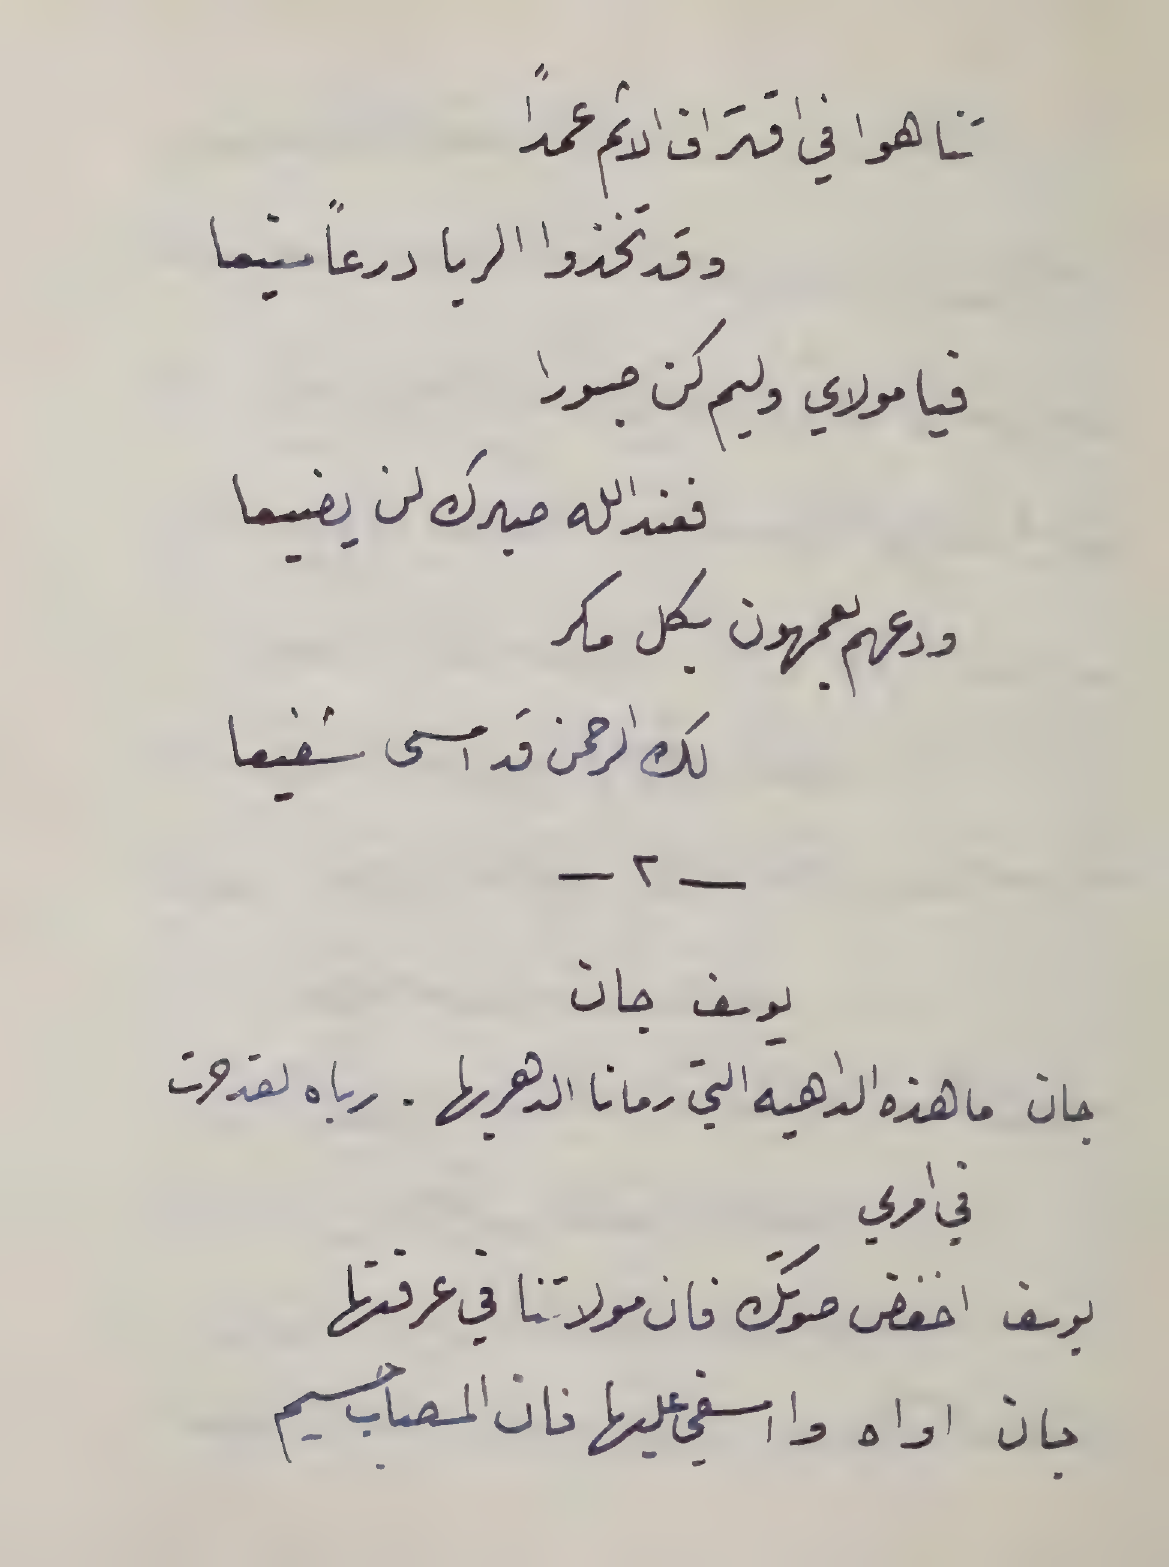 تناهوا في اقتراف الاثم عمداً
وقد تخذوا الريا درعاً منيعا
فيا مولاي وليم كن جسورا
فعند الله صبرك لن يضيعا
ودعهم يعمهون بكل مكر
لك الرحمن قد امسى شفيعا
— ٢ —
يوسف جان
جان ما هذه الداهيه التي رمانا الدهر بها . رباه لقد حرت
في امري
يوسف اخفض صوتك فان مولاتنا في غرفتها
جان اواه وا اسفي عليها فان المصاب جسيم